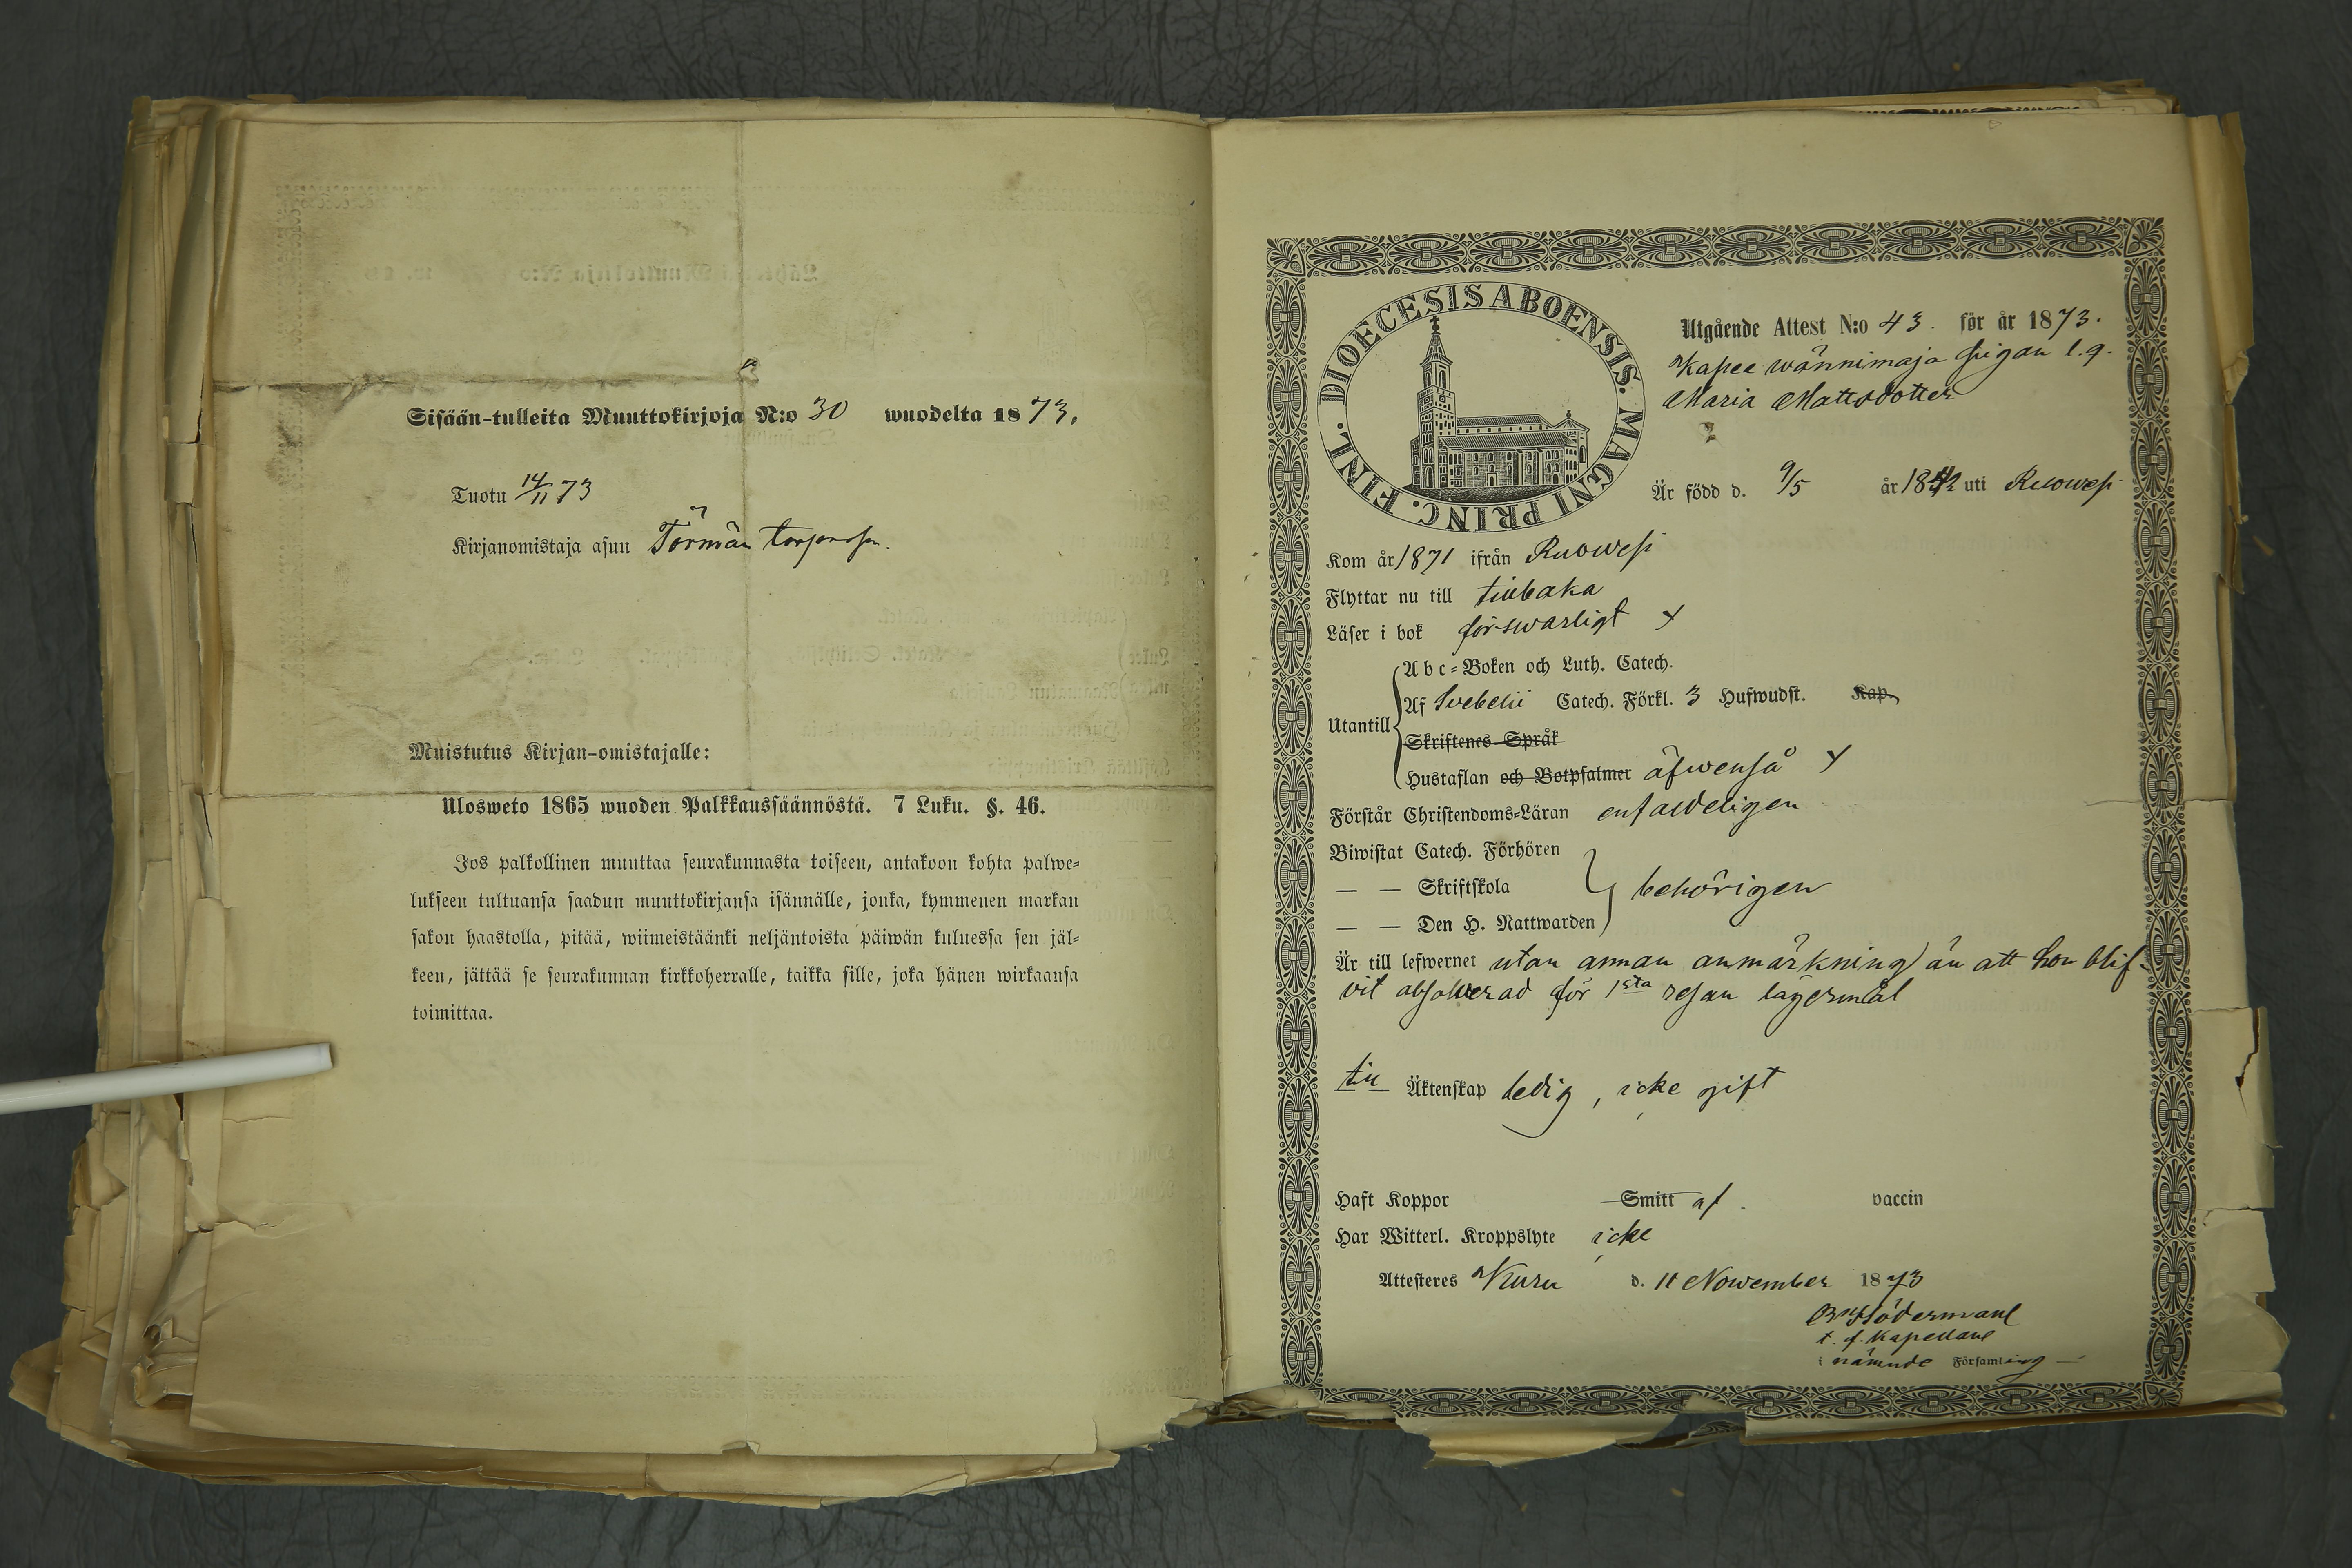 Sisään-tulleita Muuttokirjoja N:o 30 wuodelta 1873.
Tuotu 14/11 73
Kirjanomistaja asuu Törmän
Muistutus Kirjan-omistajalle:
Ulosweto 1865 wuoden Palkkaussäännöstä. 7 Luku. §. 46.
Jos palkollinen muuttaa seurakunnasta toiseen, antakoon kohta palwe-
lukseen tultuansa saadun muuttokirjansa isännälle, jonka, kymmenen markan
sakon haastolla, pitää, wiimeistäänki neljäntoista päiwän kuluessa sen jäl-
keen, jättää se seurakunnan kirkkoherralle, taikka sille, joka hänen wirkaansa
toimittaa.
DIOECESIS ABOENSIS. MAGNI PRINC. FINL.
Utgående Attest N:o 43. för år 1873.
pigan
Maria Mattsdotter
Är född d. 9/5 år 1842 uti Ruowesi
Kom år 1871 ifrån Ruowesi
Flyttar nu till tillbaka
Läser i bok förswarligt
Utantill
Abc-Boken och Luth. Catech.
Af Svebelii Catech. Förkl. 3 Hufwudst. Kap.
Skriftenes Språk
Hustaflan och Botpsalmer äfwenså
Förstår Christendoms-Läran enfaldeligen
Biwistat Catech. Förhören
— — Skriftskola behörigen
— — Den H. Nattwarden
Är till lefwernet utan annan anmärkning än att hon blif-
vit absolverad för 1sta resan lägersmål
till Äktenskap ledig, icke gift
Haft Koppor Smitt af vaccin
Har Witterl. Kroppslyte icke
Attesteres Kuru d. 11 November 1873
Södermanl
t. f. Kapellan
i nämnde Församling